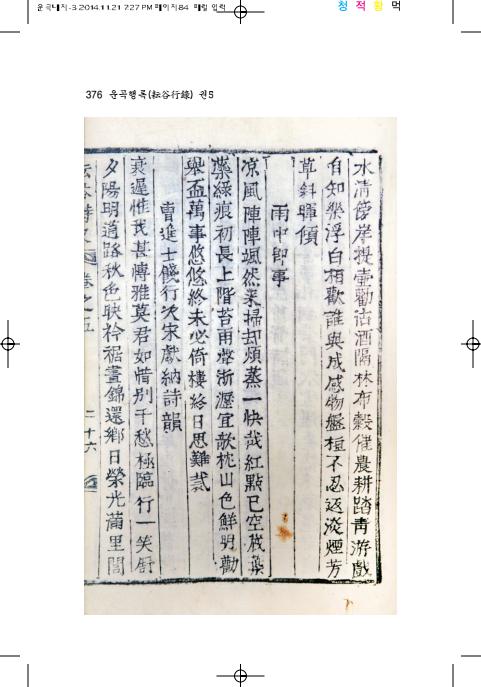 운곡내지-3 2014.11.21 7:27 PM 페이지84 매킬 입력
청 적 황 먹
376 운곡행록(耘谷行錄) 권5
水清傍岸提壺勸沽酒隔林布穀催農耕踏青游戲
自知幾浮白相歡誰與成感物盤桓不忍返淡煙芳
草斜暉傾
雨中即事
凉風陣陣颯然來掃却煩蒸一快哉紅點已空
綠痕初長上階苔雨聲淅瀝宜欹枕山色鮮明勸
擧盃萬事悠悠終未必倚樓終日思難裁
曹進士餞行次宋獻納詩韻
衰遲惟我甚博雅莫君如惜別千愁極臨行一笑
夕陽明道路秋色映衿裾晝錦還鄕日榮光滿里閭
耘谷詩史 卷之五 二十六